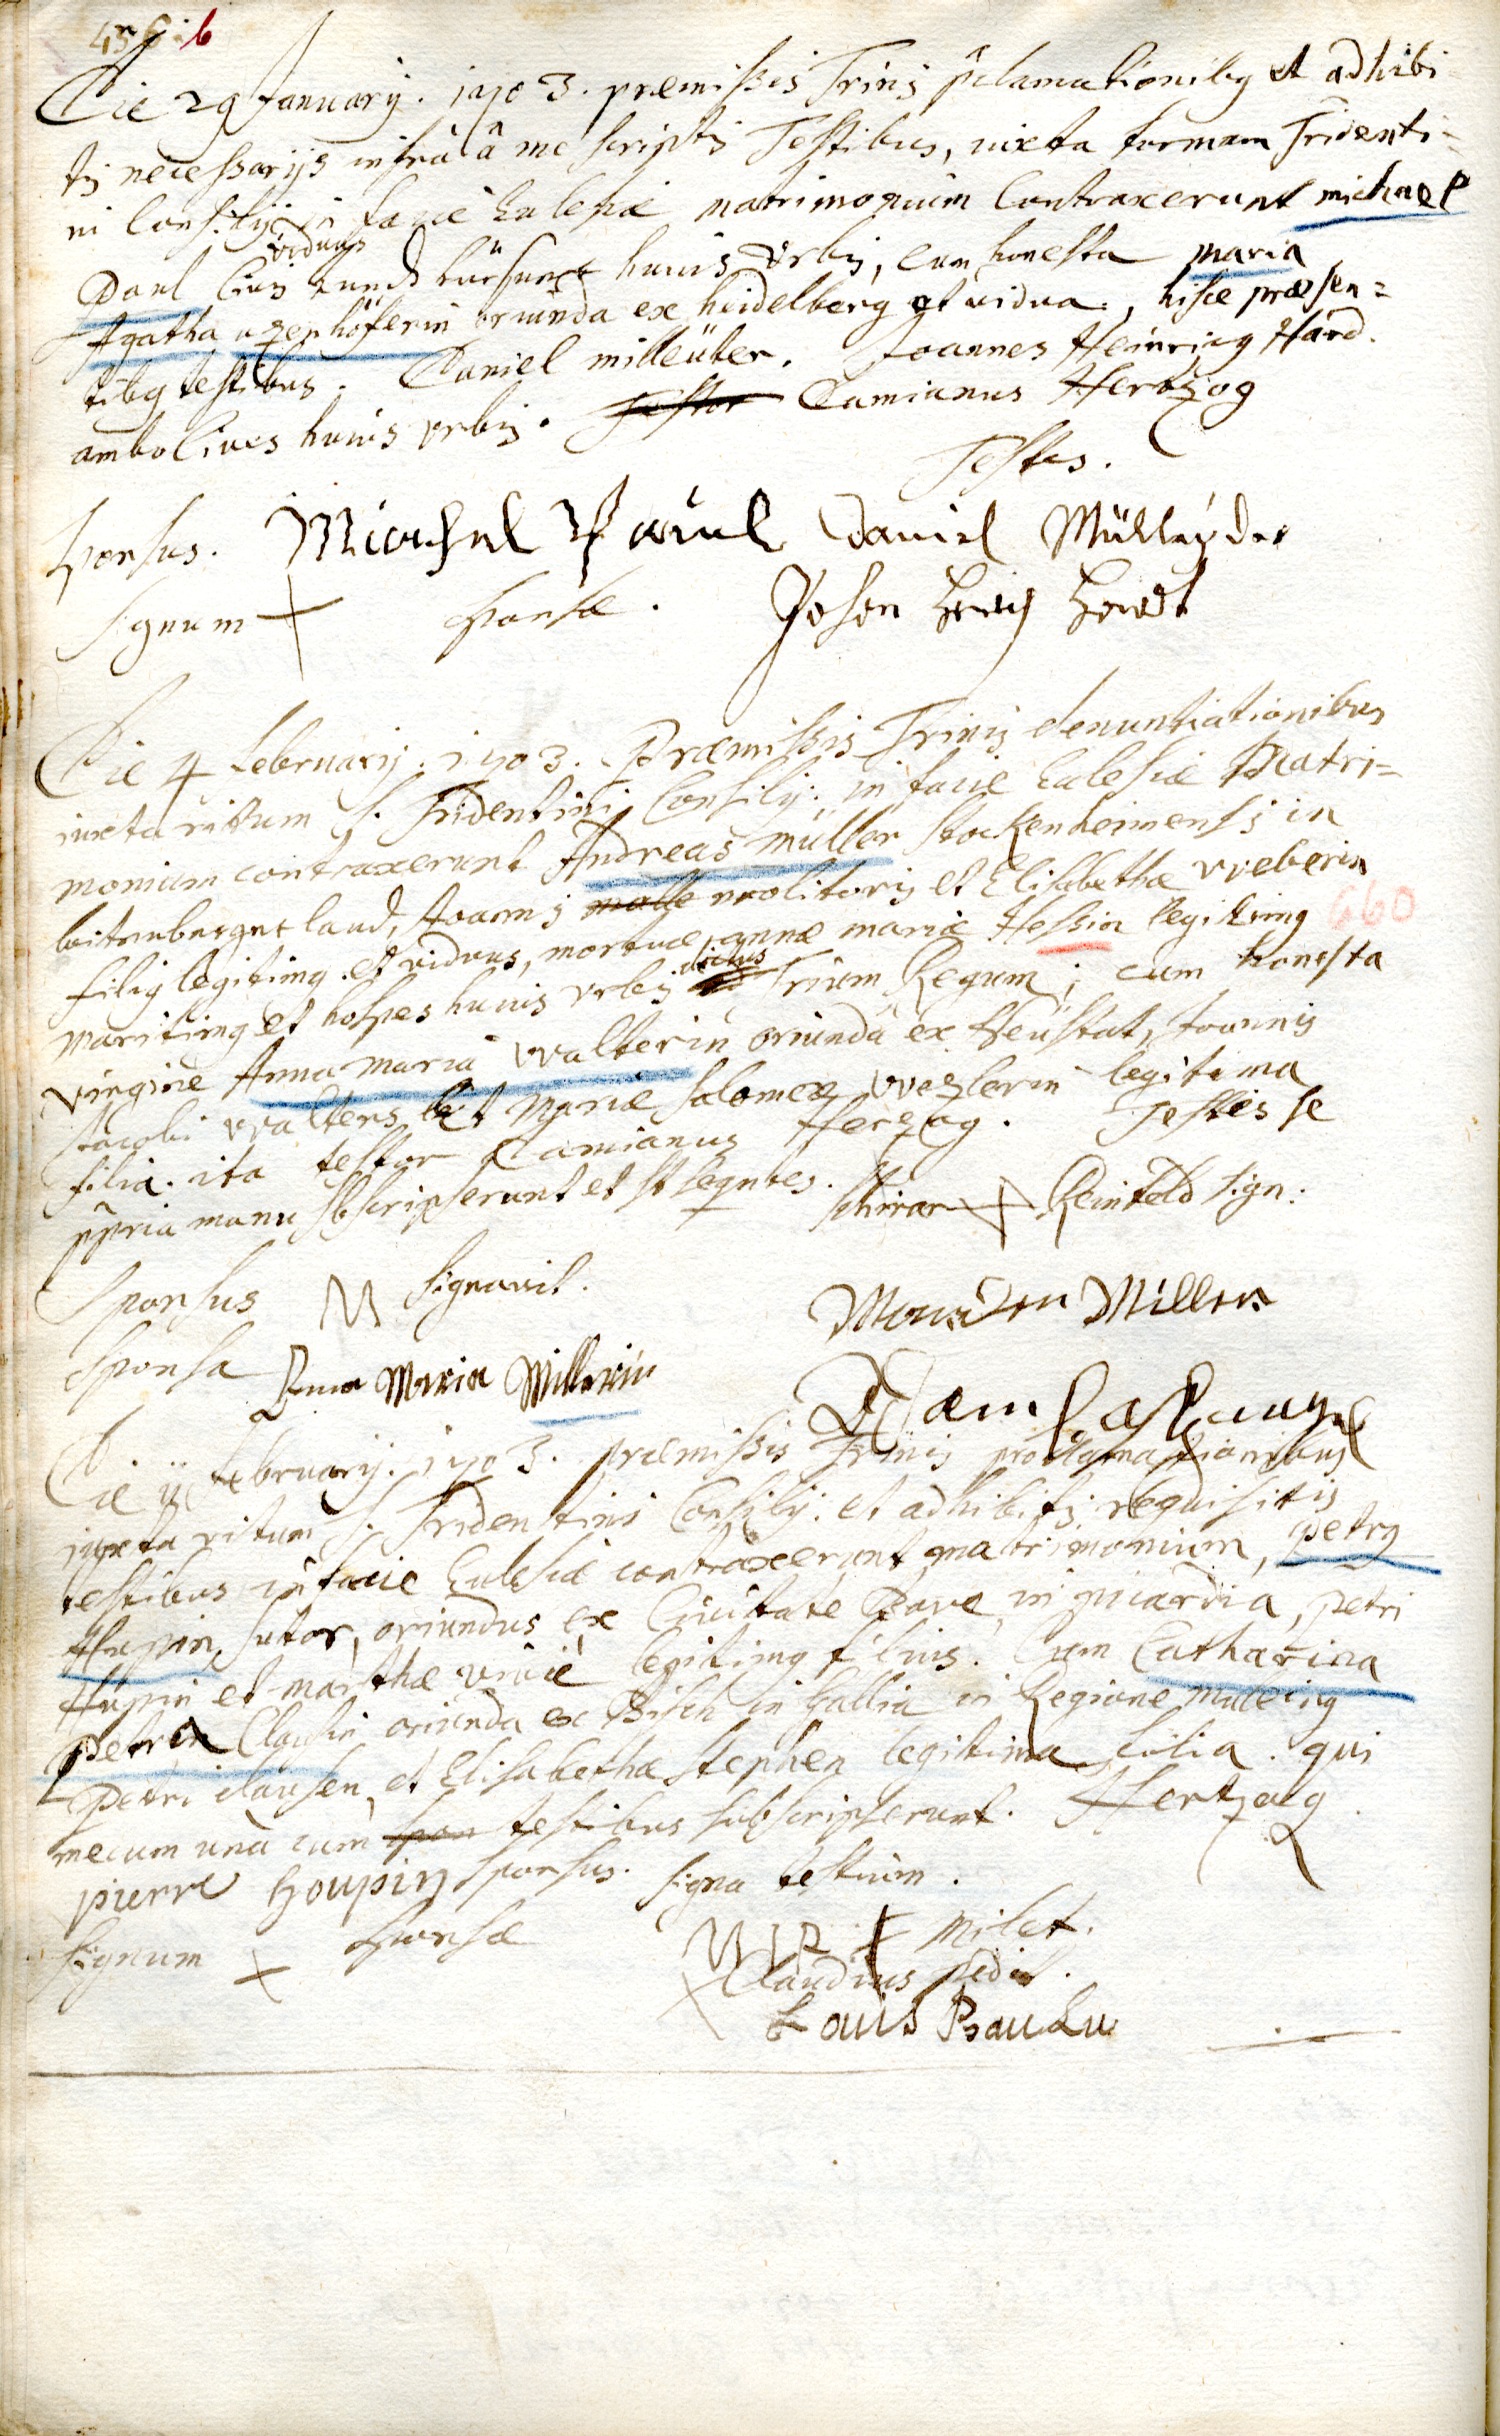 456:b
Die 29 January. 1703. præmissis Trinis p̃clamationibg et adhibi-
tis necessarijs infrà â me scriptis Testibus, iuxta formam Tridenti-
ni Consilij in facie Eclesiæ matrimonium Contraxerunt michael
viduus
Paul Civis huius Vrbis, cum honesta maria
Agatha oriunda ex heidelberg et vidua., hisce præsen=
tibg testibus. Daniel milleüter. Joannes Heinricg Hard.
ambo Cives huius vrbis. Testor Damianus Hertzog
Testes.
sponsus. Michael Paul Daniel Mülleyder
signum + sponsæ. Johan Henrich Hardt
Die 4 februarij. 1703. Præmissis Trinis denuntiationibus
iuxta ritum S. Tridentini Consilij: in facie Eclesiæ Matri=
monium contraxerunt Andreas müller stockenheimensis in
witenberger land, Joannis molitoris et Elisabethæ vveberin
filig legitimg. et viduus, mortuæ annæ mariæ Hessin legitimg
660
maritimg et hospes huius vrbis dictus Trium Regum; cum honesta
virgine Anna maria vvalterin oriunda ex Neüstat, Joannis
Jacobi vvalters et Mariæ salomeæ vvezlerin legitima
filia. ita testor Damianus Herzog. Testes se
p̃pria manu sbscripserunt et st seqntes.
+ Reinfeld sign:
Sponsus M signavit.
Miller
Sponsa Anna Maria Millerin
Adam
Die ij februarij. 1703. præmissis Trinis proclamationibus
iuxta ritum S. Tridentini Consilij: et adhibitis requisitis
testibus in facie Eclesiæ contraxerunt matrimonium, petrg
Hupin, sutor, oriundus ex Civitate in picardia, petri
Hupin et marthæ legitimg filius. Cum Catharina
petrea Clausin oriunda ex Bisch in Gallia in Regione
petri clausen, et Elisabethæ stephen legitima filia. qui
mecum unà cum spon testibus subscripserunt. Hertzog
pierre houpin sponsus. signa testium.
signum + sponsæ milet.
Claudius
Louis